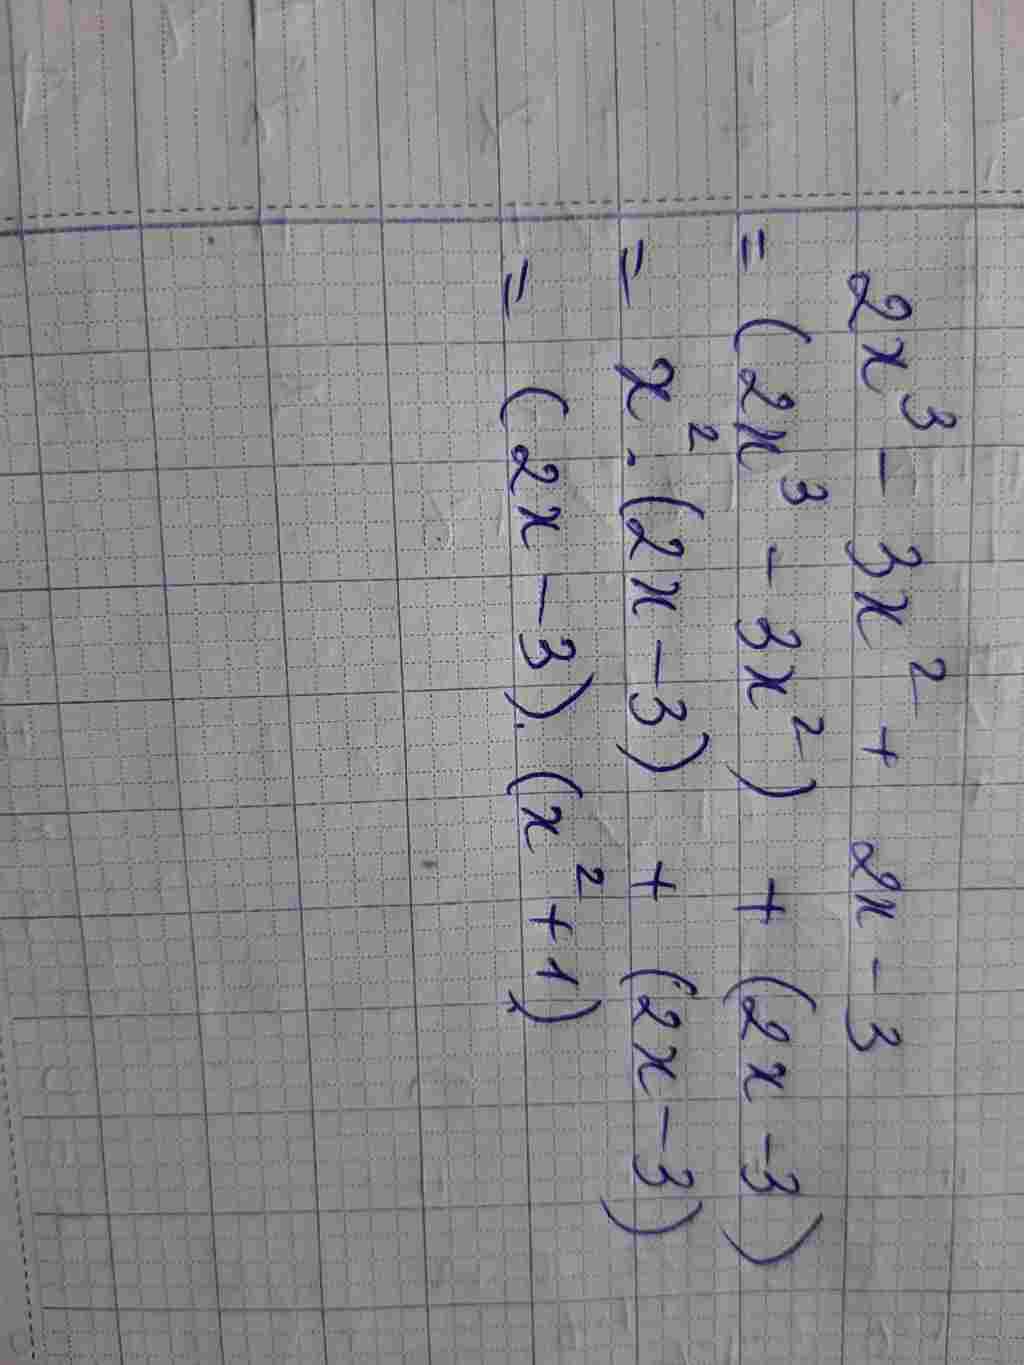 2x³ - 3x² + 2x - 3
= (2x³ - 3x²) + (2x - 3)
= x² . (2x - 3) + (2x - 3)
= (2x - 3) . (x² + 1)